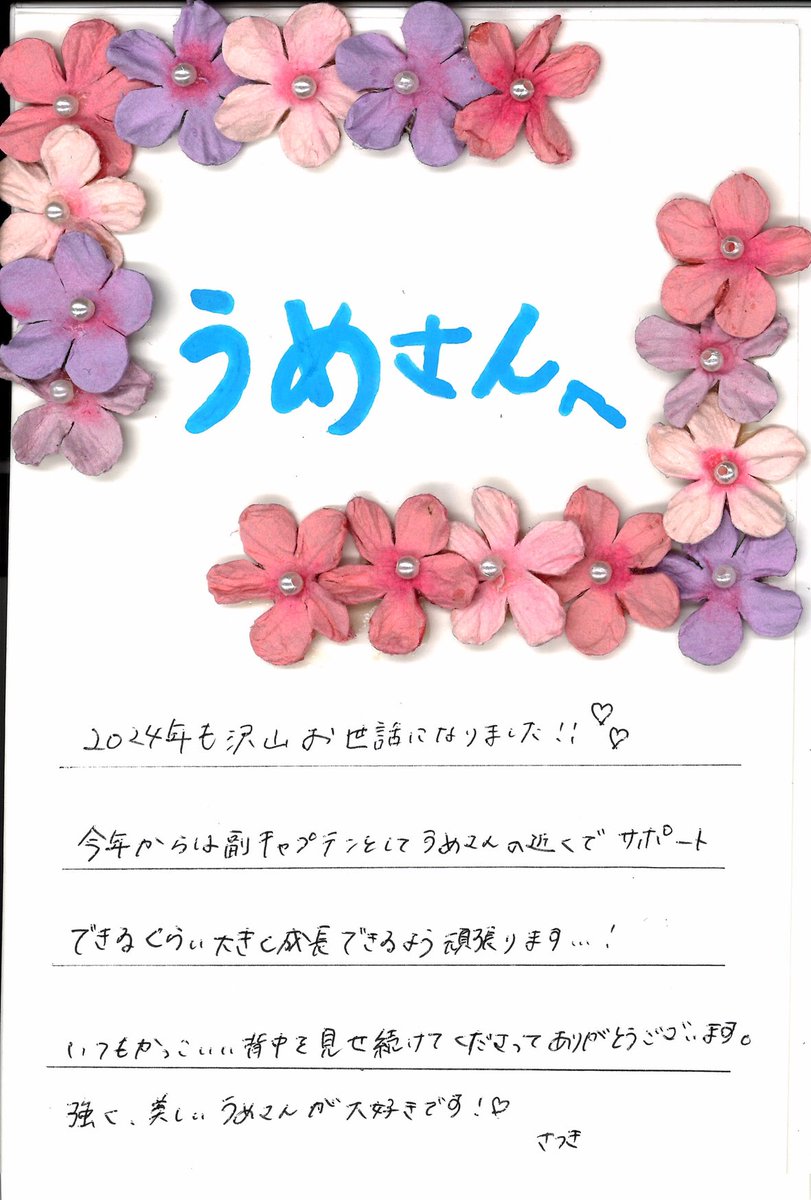 うめさんへ
2024年も沢山お世話になりました!!♡♡
今年からは副キャプテンとしてうめさんの近くでサポート
できるぐらい大きく成長できるよう頑張ります…!
いつもかっこいい背中を見せ続けてくださってありがとうございます。
強く、美しいうめさんが大好きです!♡
さつき